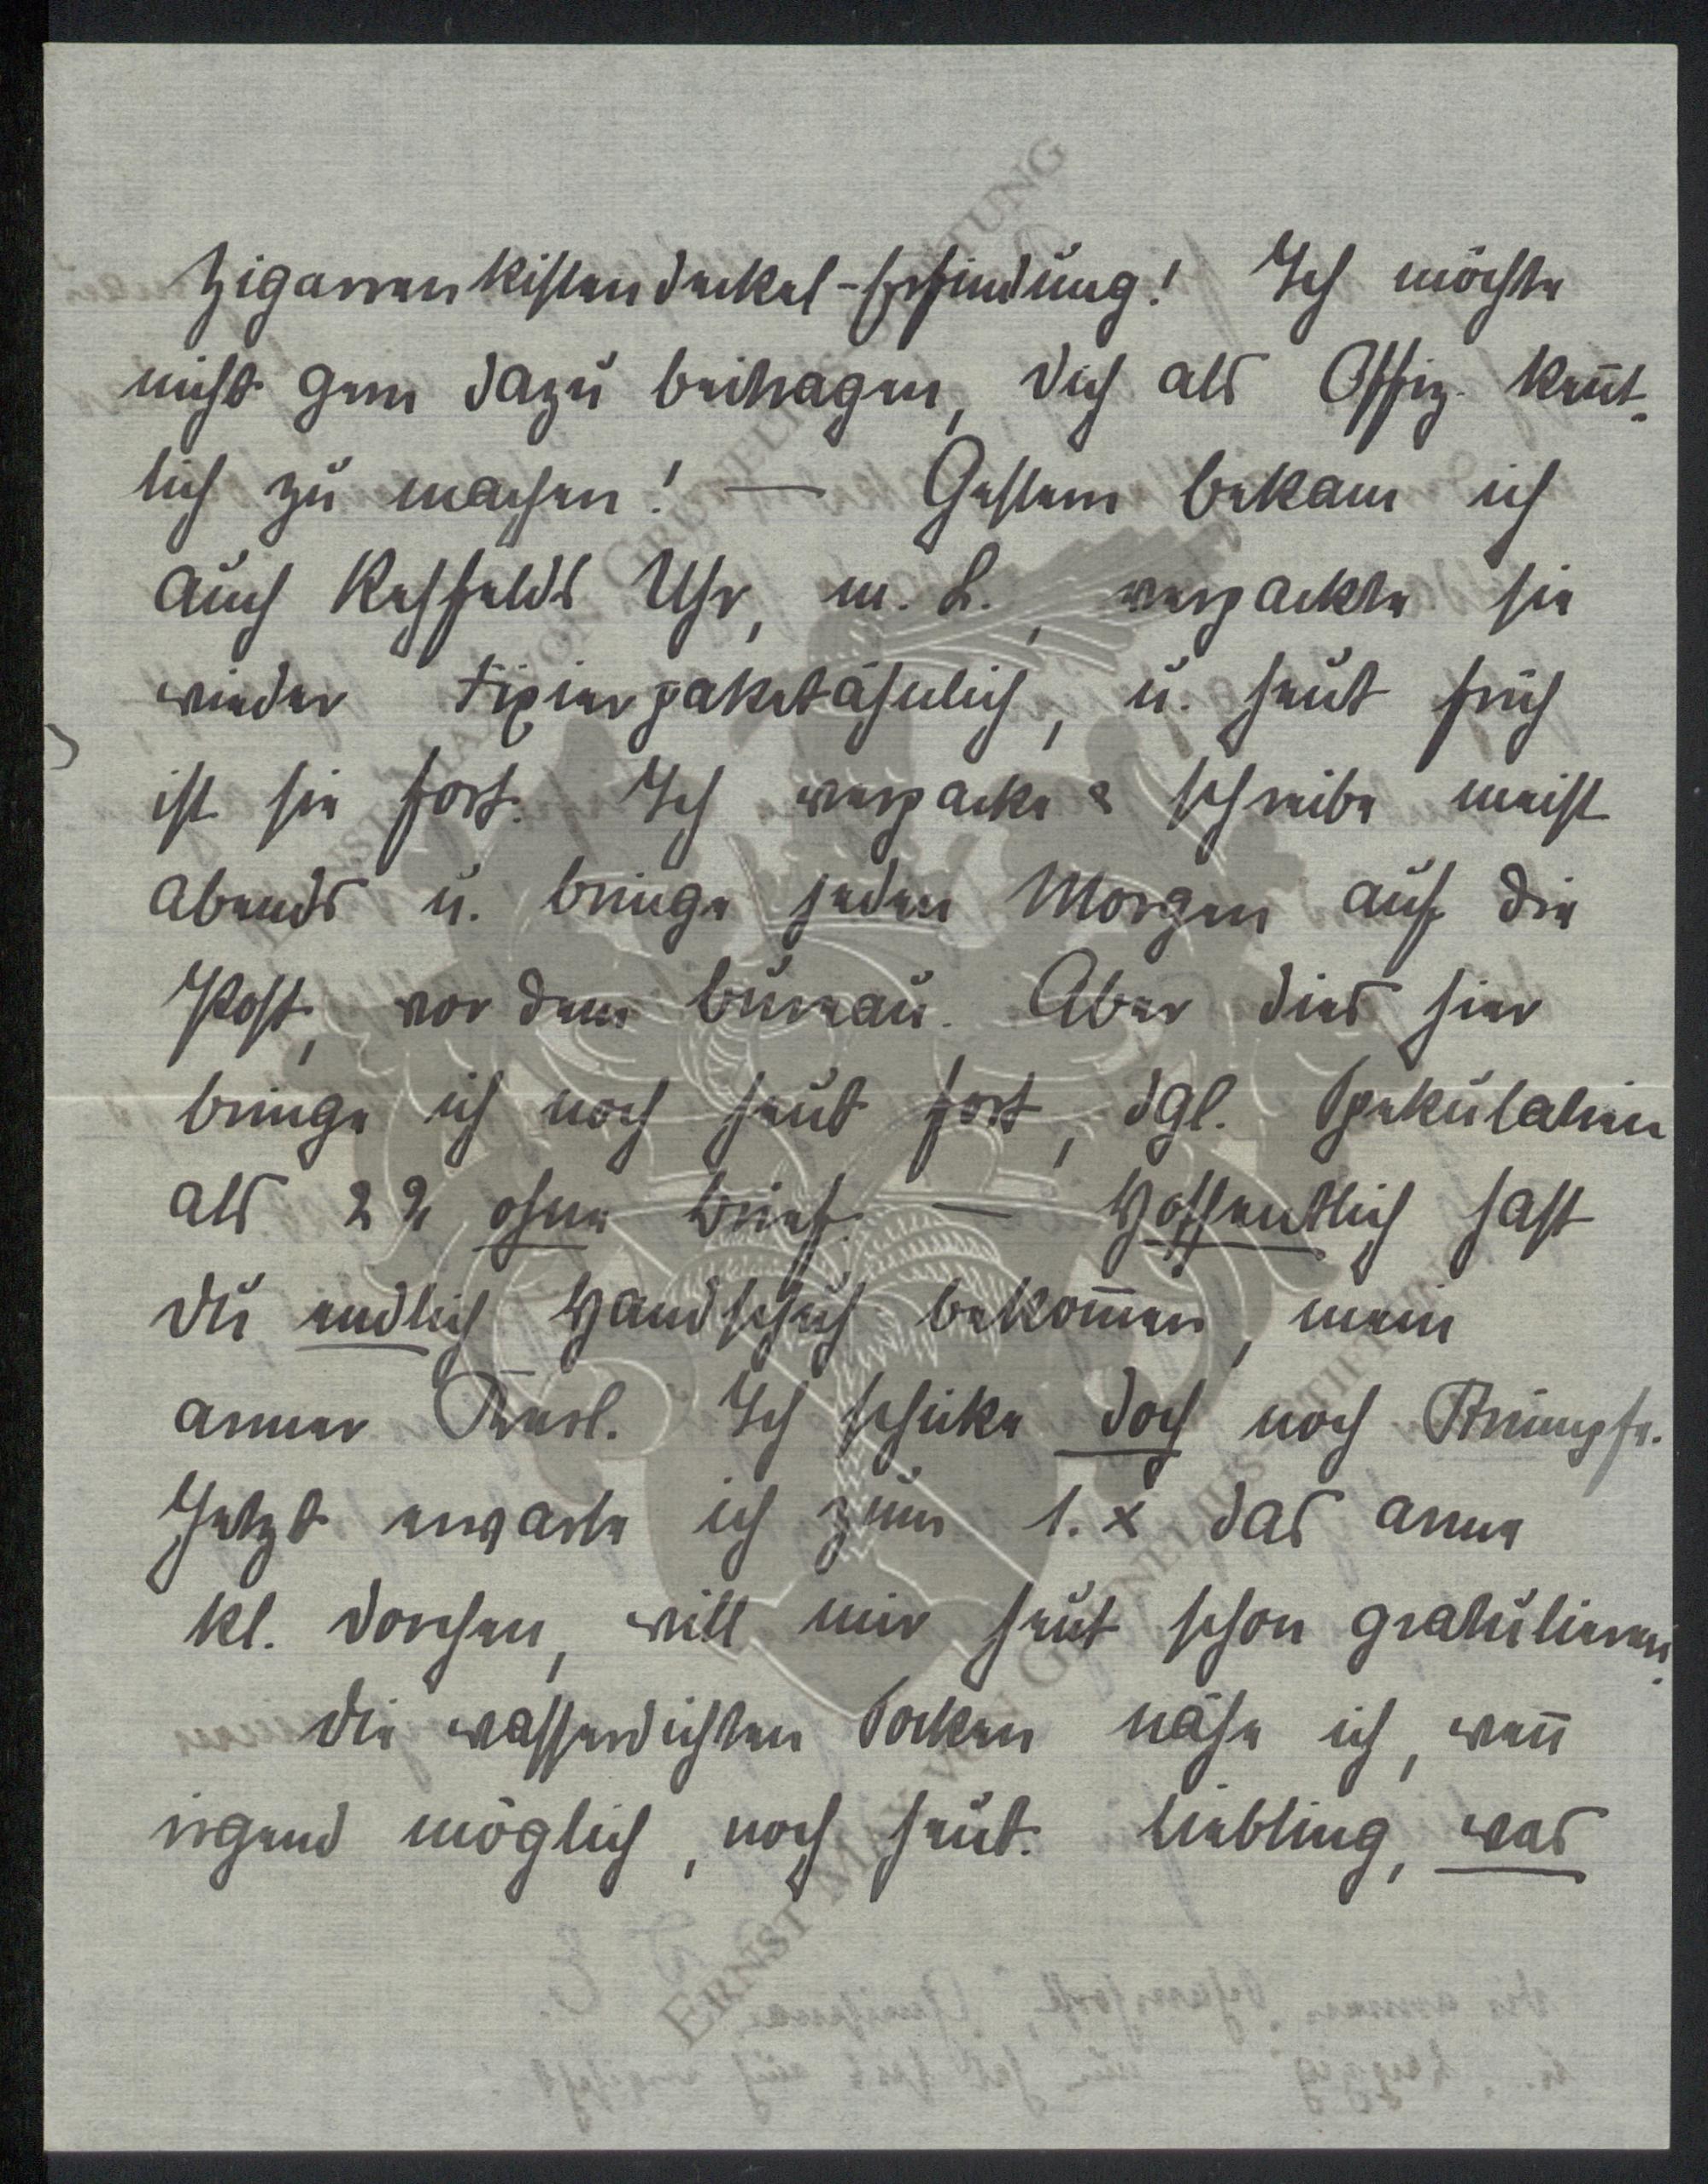 Zigarrenkistendeckel-Erfindung! Ich möchte
nicht gern dazu beitragen, dich als Offiz. kennt-
lich zu machen! — Gestern bekam ich
auch Rehfelds Uhr, m. L., verpackte sie
wieder Fixierpaketähnlich, u. heut früh
ist sie fort. Ich verpacke & schreibe meist
abends u. bringe jeden Morgen auf die
Post, vor dem büreau. Aber dies hier
bringe ich noch heut fort, dgl. Spekulatien
als 22 ohne brief. — Hoffentlich hast
du endlich Handschuh bekom̅en, mein
armer Kerl. Ich schicke doch noch Strümpfe.
Jetzt erwarte ich zum 1. X das arme
kl. dorchen, will mir heut schon gratulieren.
die wasserdichten Socken nähe ich, wen̅
irgend möglich, noch heut. liebling, was
ERNST MAX VON GRUNELIUS-STIFTUNG
ERNST MAX VON GRUNELIUS-STIFTUNG